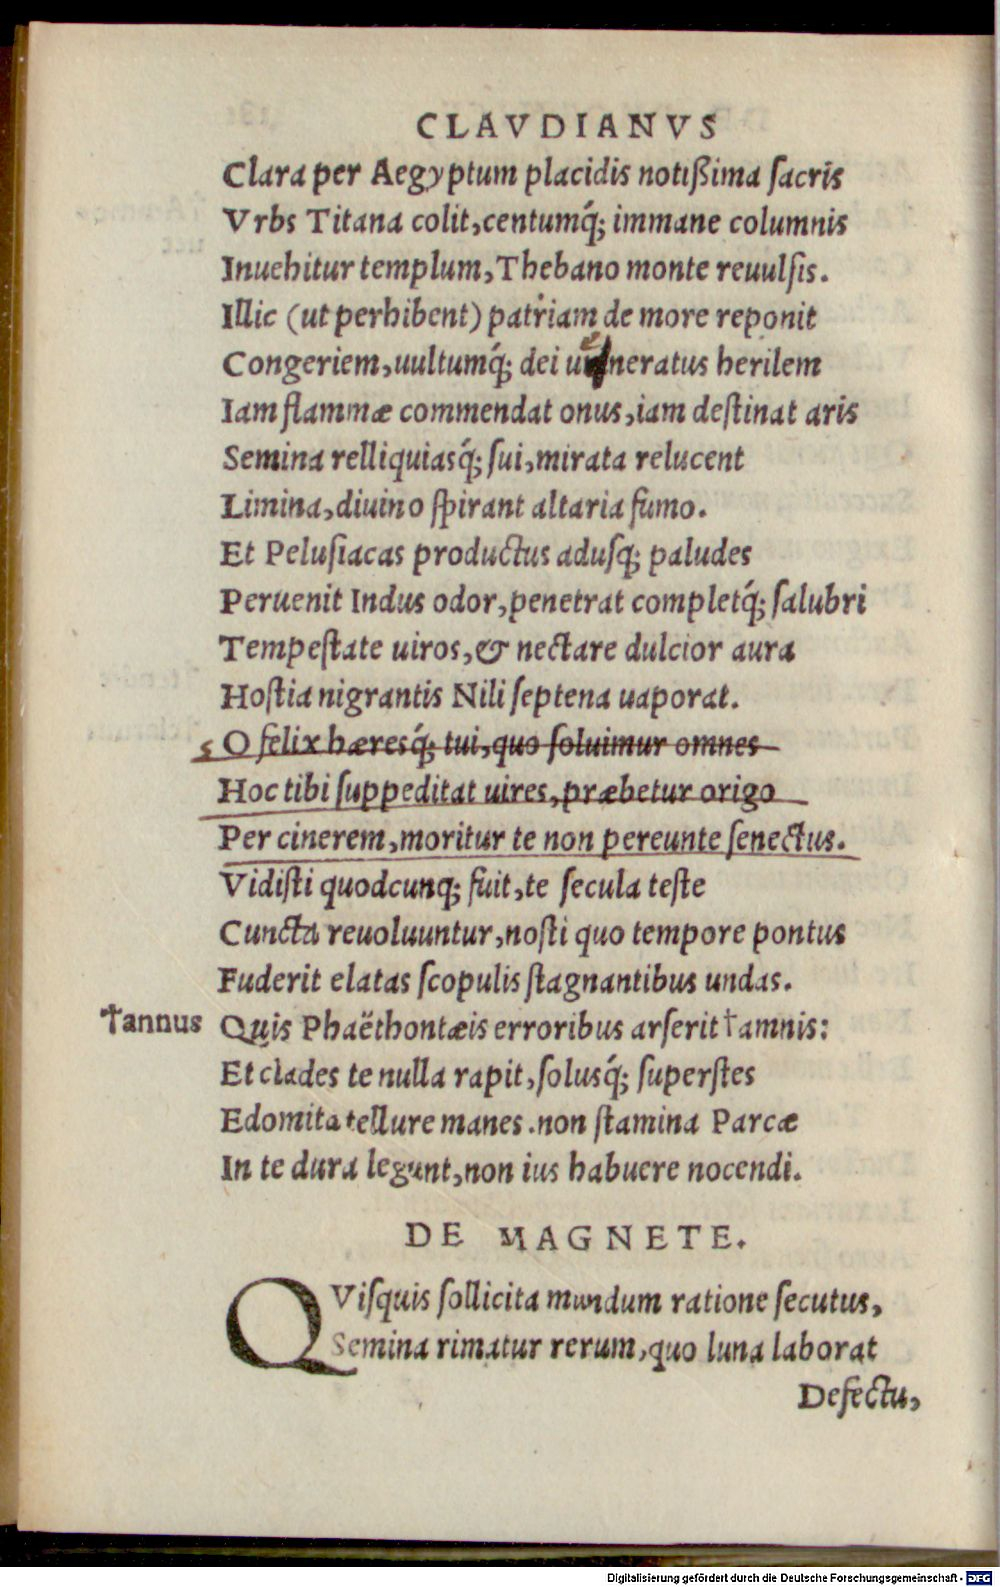 CLAVDIANVS
Clara per Aegyptum placidis notißima sacris
Vrbs Titana colit, centumq́; immane columnis
Inuehitur templum, Thebano monte reuulsis.
Illic (ut perhibent) patriam de more reponit
Congeriem, uultumq́; dei ueneratus herilem
Iam flammæ commendat onus, iam destinat aris
Semina relliquiasq́; sui, mirata relucent
Limina, diuino spirant altaria fumo.
Et Pelusiacas productus adusq; paludes
Peruenit Indus odor, penetrat completq́; salubri
Tempestate uiros, & nectare dulcior aura
Hostia nigrantis Nili septena uaporat.
O felix hæresq́; tui, quo soluimur omnes
Hoc tibi suppeditat uires, præbetur origo
Per cinerem, moritur te non pereunte senectus.
Vidisti quodcunq; fuit, te secula teste
Cuncta reuoluuntur, nosti quo tempore pontus
Fuderit elatas scopulis stagnantibus undas.
†annus Quis Phaëthontæis erroribus arserit †amnis:
Et clades te nulla rapit, solusq́; superstes
Edomita tellure manes. non stamina Parcæ
In te dura legunt, non ius habuere nocendi.
DE MAGNETE.
QVisquis sollicita mundum ratione secutus,
Semina rimatur rerum, quo luna laborat
Defectu,
Digitalisierung gefördert durch die Deutsche Forschungsgemeinschaft - DFG